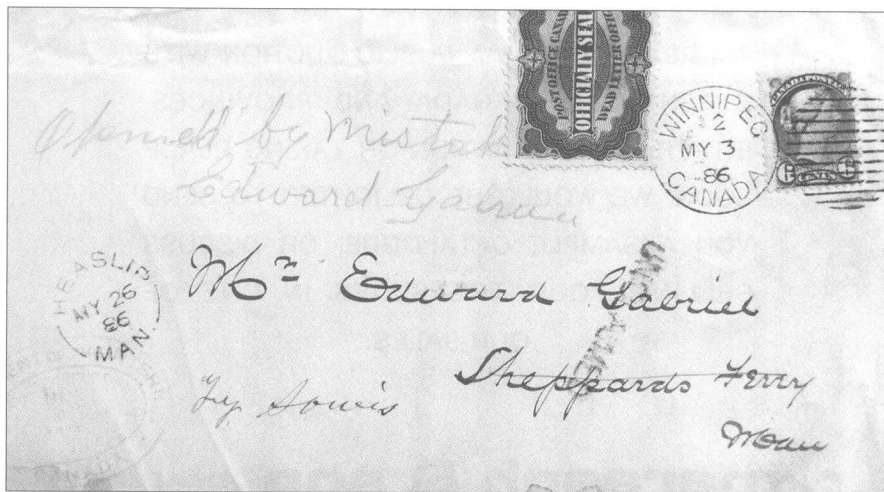 POST OFFICE CANADA
OFFICIALLY SEAL
DEAD LETTER OFFIC
CANADA POSTAGE
WINNIPEG
2
MY 3
86
CANADA
CENTS
Opened by Mistak
Edward Gabriel
HEASLIP
MY 26
86
MAN.
Mr Edward Gabriel
Sheppards Ferry
Man
Try Souris